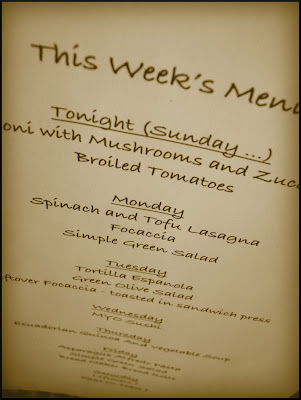 This Week's Menu
Tonight (Sunday ...)
oni with Mushrooms and Zucc
Broiled Tomatoes
Monday
Spinach and Tofu Lasagna
Focaccia
Simple Green Salad
Tuesday
Tortilla Espanola
Green Olive Salad
ftover Focaccia - toasted in sandwich press
Wednesday
MYO Sushi
Thursday
Ecuadorian Quinoa and Vegetable Soup
Friday
Asparagus Alfredo Pasta
Simple Green Salad
Saturday